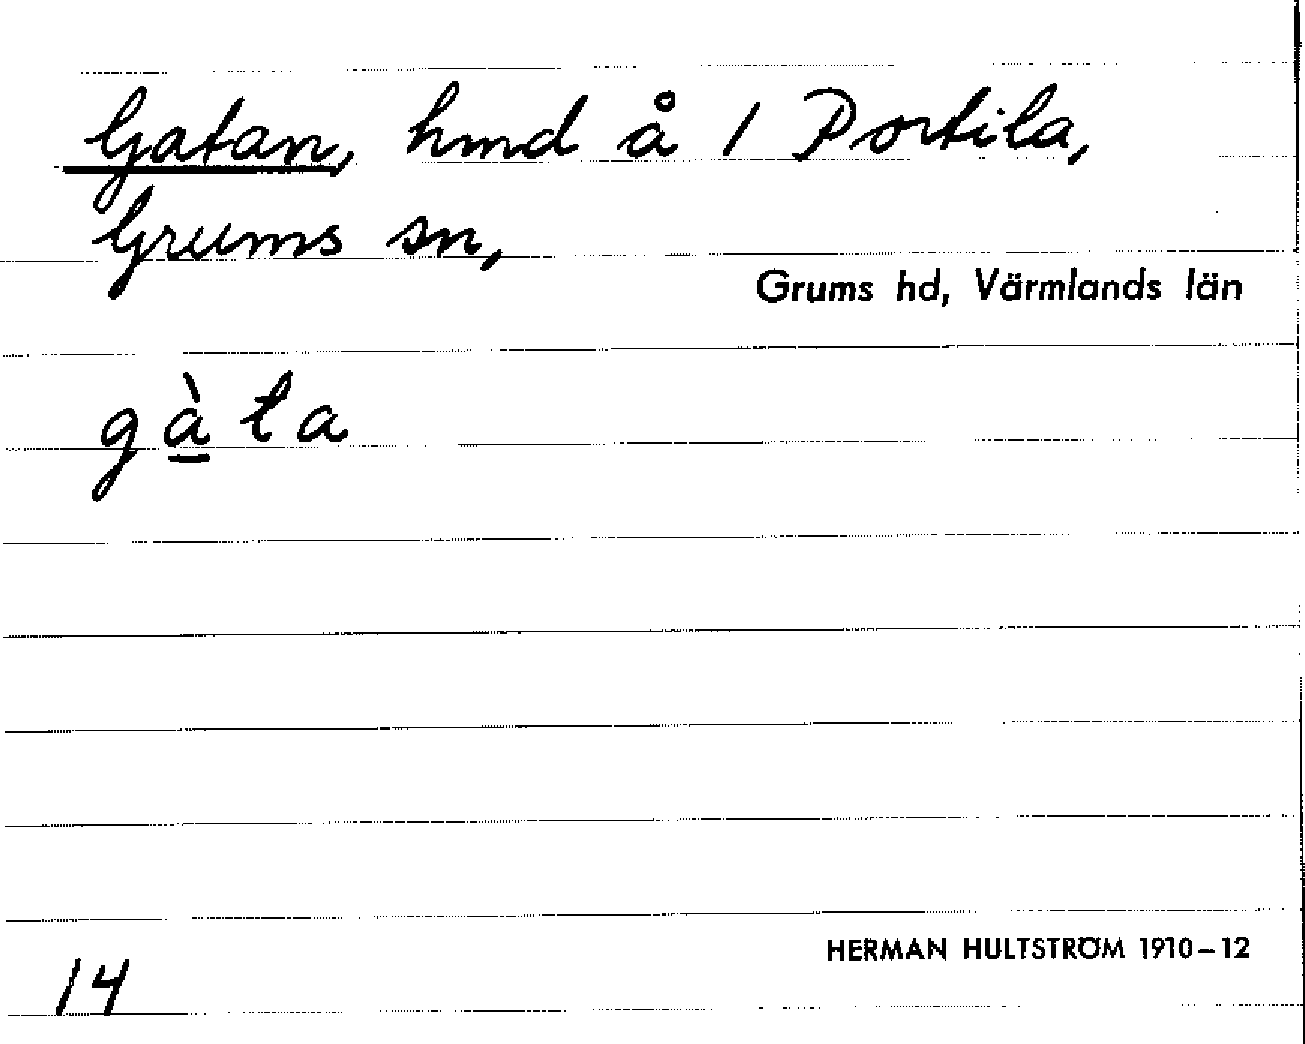 Gatan, hmd å 1 Portila,
Grums sn,
Grums hd, Värmlands län
gàta
14
HERMAN HULTSTRÖM 1910–12